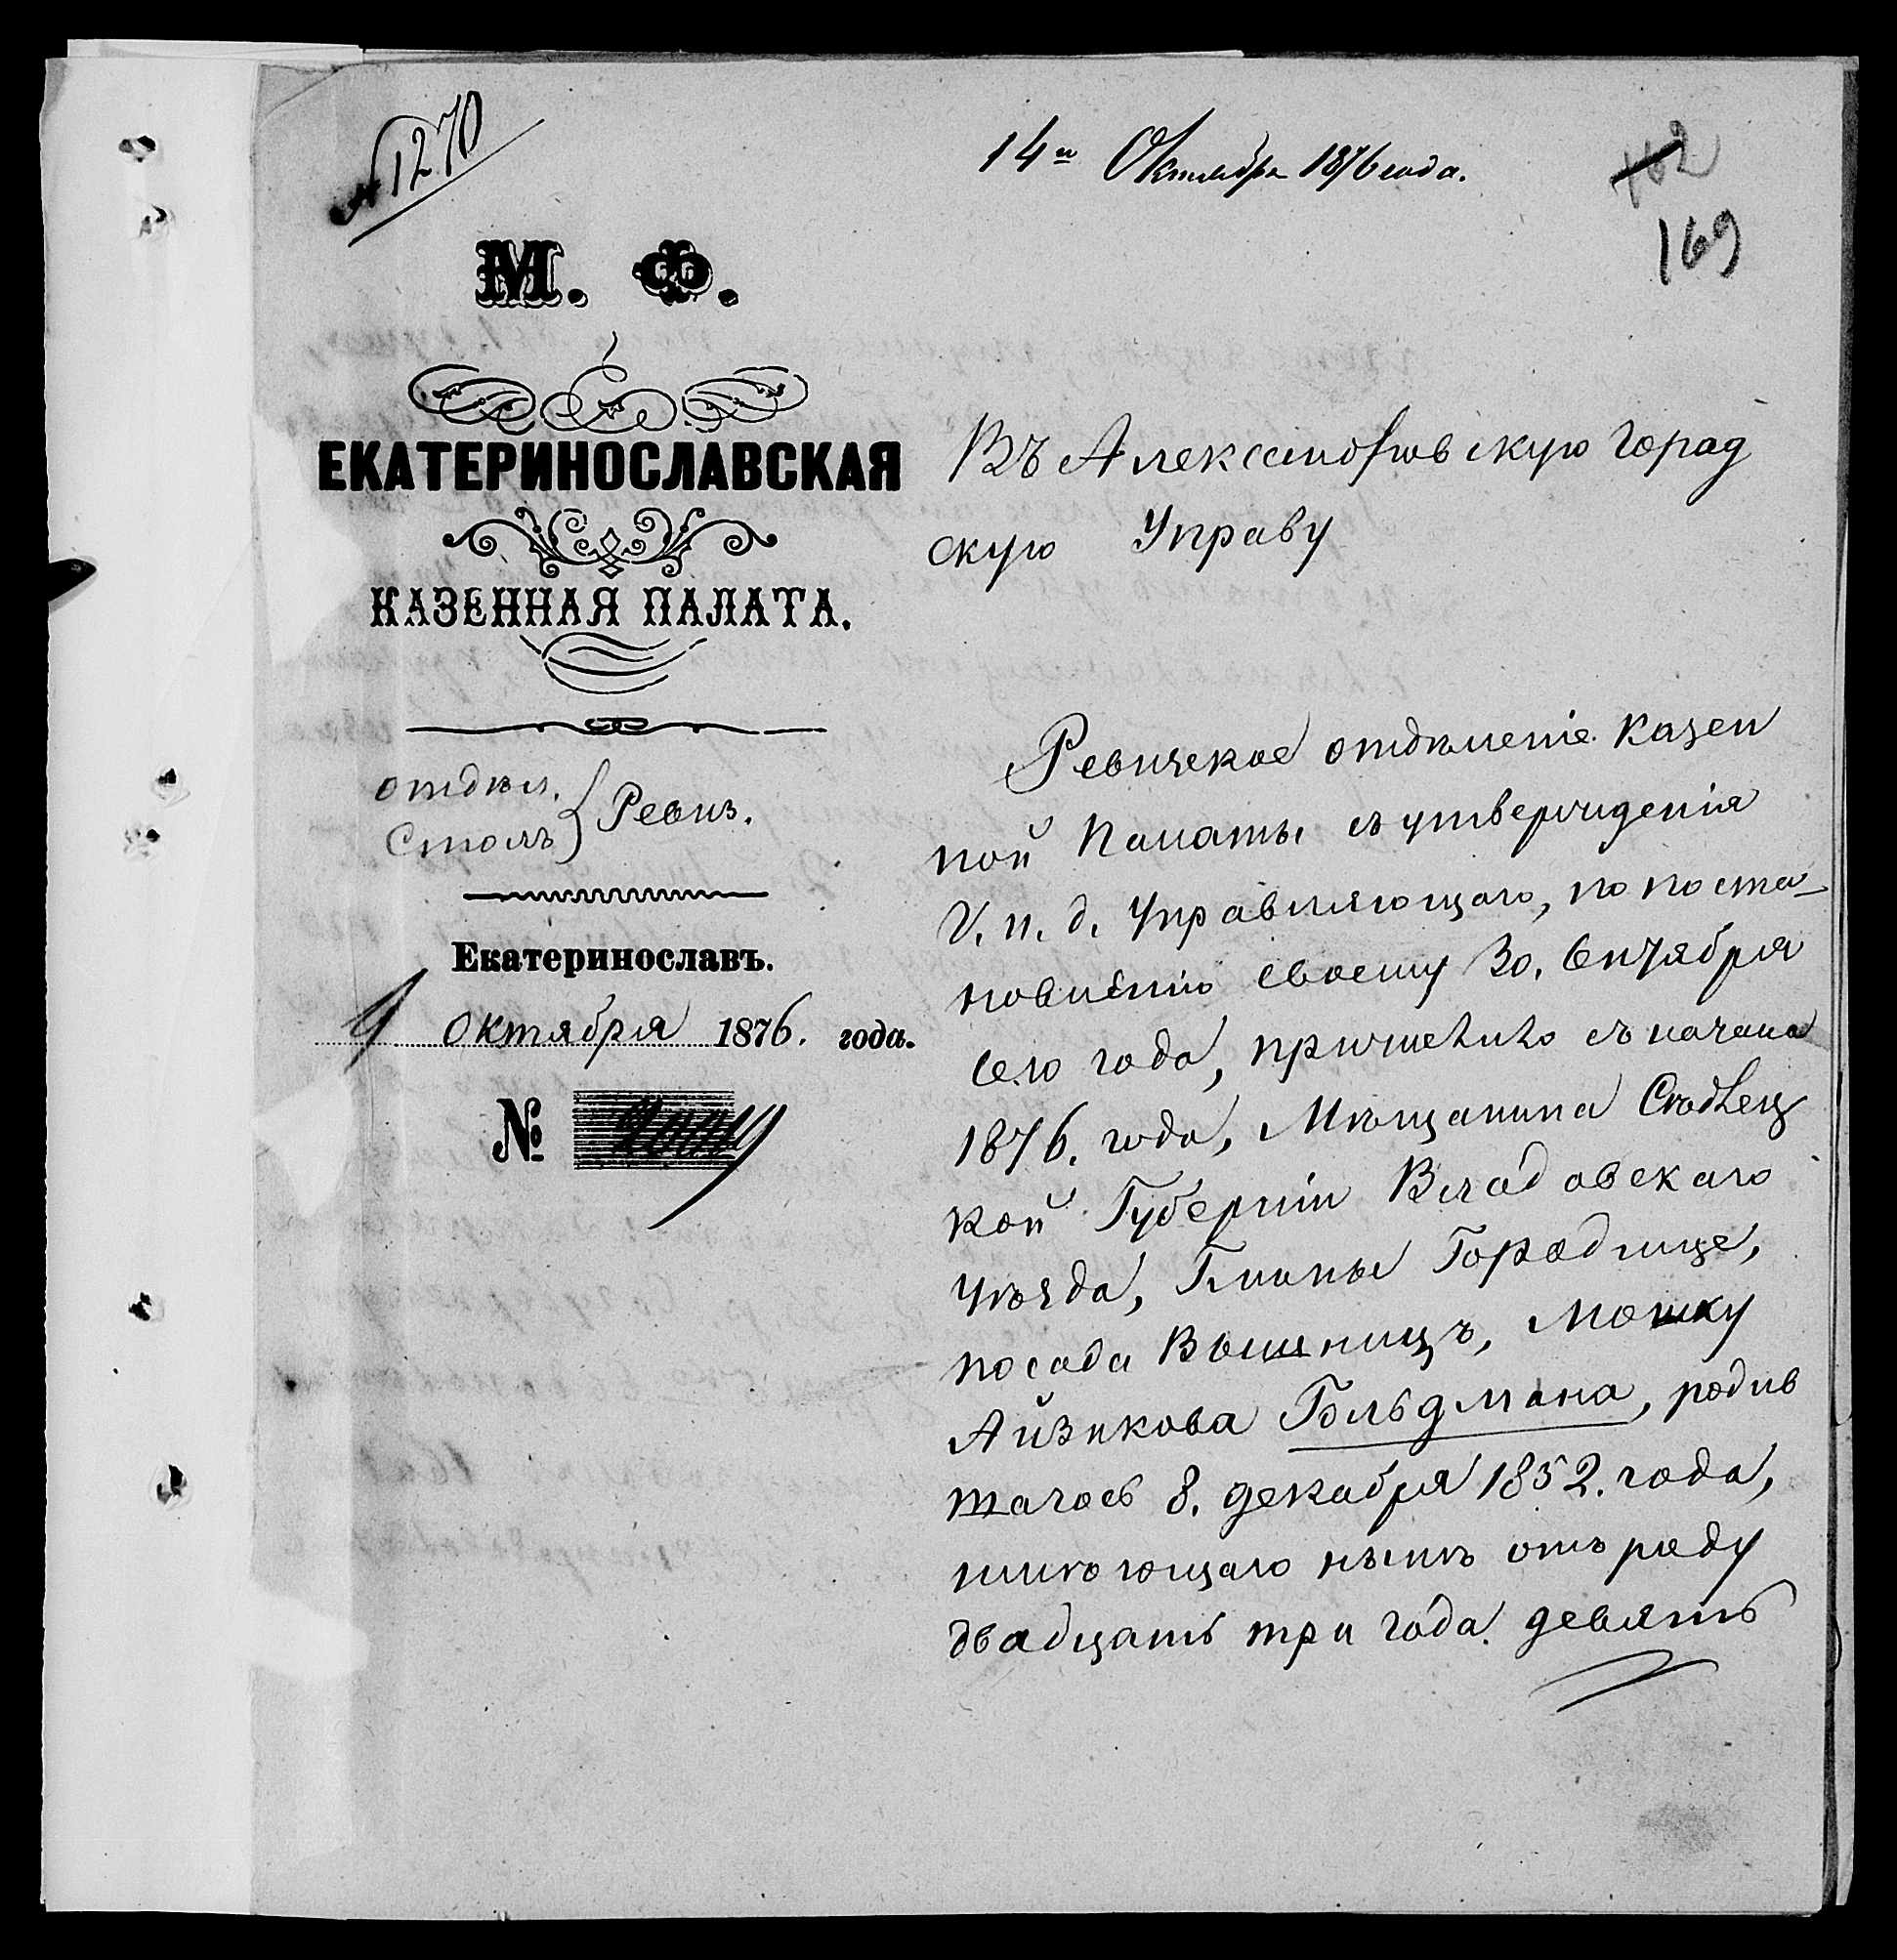 № 1270
14го Октября 1876 года.
102
169
М. Ф.
ЕКАТЕРИНОСЛАВСКАЯ
КАЗЕННАЯ ПАЛАТА.
отдѣл.
Столъ } Ревиз.
Екатеринославъ.
9 Октября 1876. года.
№
Въ Александровскую Город
скую Управу
Ревизское отдѣленіе Казен
ной Палаты съ утвержденія
И. д. Управляющаго, по поста-
новленію своему 30. Сентября
сего года, причислило съ начала
1876. года, Мѣщанина Сѣдлец
кой Губерніи Влодавскаго
Уѣзда, Гмины Городище,
посада Вышницъ, Мошку
Айзикова Гольдмана, родив
шагось 8. декабря 1852. года,
имѣющаго нынѣ отъ роду
двадцать три года девять